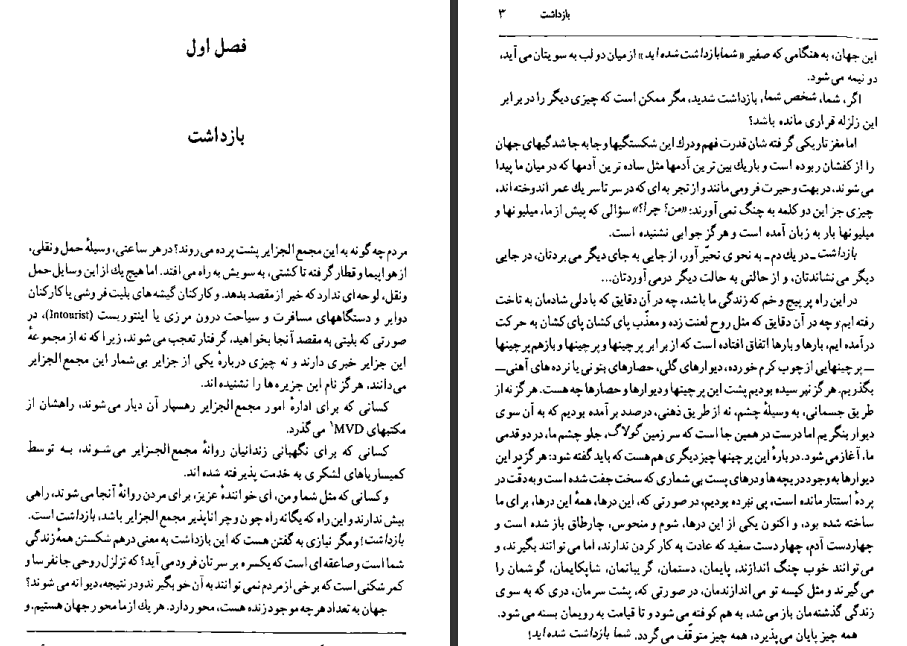 فصل اول
بازداشت
مردم چه گونه به این مجمع الجزایر پشت پرده می روند؟ در هر ساعتی، وسیلهٔ حمل و نقلی،
از هواپیما و قطار گرفته تا کشتی، به سویش به راه می افتد. اما هیچ یك از این وسایل حمل
ونقل، لوحه ای ندارد که خبر از مقصد بدهد. و کارکنان گیشه های بلیت فروشی یا کارکنان
دوایر و دستگاههای مسافرت و سیاحت درون مرزی یا اینتوریست (Intourist)، در
صورتی که بلیتی به مقصد آنجا بخواهید، گرفتار تعجب می شوند، زیرا که نه از مجموعهٔ
این جزایر خبری دارند و نه چیزی دربارهٔ یکی از جزایر بی شمار این مجمع الجزایر
می دانند. هرگز نام این جزیره ها را نشنیده اند.
کسانی که برای ادارهٔ امور مجمع الجزایر رهسپار آن دیار می شوند، راهشان از
مکتبهای MVD۱ می گذرد.
کسانی که برای نگهبانی زندانیان روانهٔ مجمع الجزایر می شوند، به توسط
کمیساریاهای لشکری به خدمت پذیرفته شده اند.
و کسانی که مثل شما و من، ای خوانندهٔ عزیز، برای مردن روانهٔ آنجا می شوند، راهی
بیش ندارند و این راه که یگانه راه چون و چرا ناپذیر مجمع الجزایر باشد، بازداشت است.
بازداشت! و مگر نیازی به گفتن هست که این بازداشت به معنی درهم شکستن همهٔ زندگی
شما است و صاعقه ای است که یکسره بر سرتان فرود می آید؟ که تزلزل روحی جانفرسا و
کمرشکنی است که برخی از مردم نمی توانند به آن خو بگیرند و در نتیجه، دیوانه می شوند؟
جهان به تعداد هر چه موجود زنده هست، محور دارد. هر یك از ما محور جهان هستیم. و
بازداشت ۳
این جهان، به هنگامی که صفیر «شما بازداشت شده اید» از میان دو لب به سویتان می آید،
دو نیمه می شود.
اگر، شما، شخص شما، بازداشت شدید، مگر ممکن است که چیزی دیگر را در برابر
این زلزله قراری مانده باشد؟
اما مغز تاریکی گرفته شان قدرت فهم و درك این شکستگیها و جابه جا شدگیهای جهان
را از کفشان ربوده است و باریك بین ترین آدمها مثل ساده ترین آدمها که در میان ما پیدا
می شوند، در بهت و حیرت فرو می مانند و از تجربه ای که در سرتاسر یك عمر اندوخته اند،
چیزی جز این دو کلمه به چنگ نمی آورند: «من؟ چرا؟» سؤالی که پیش از ما، میلیونها و
میلیونها بار به زبان آمده است و هرگز جوابی نشنیده است.
بازداشت ـ در یك دم ـ به نحوی تحیّر آور، از جایی به جای دیگر می بردتان، در جایی
دیگر می نشاندتان، و از حالتی به حالت دیگر درمی آوردتان...
در این راه پر پیچ و خم که زندگی ما باشد، چه در آن دقایق که با دلی شادمان به تاخت
رفته ایم و چه در آن دقایق که مثل روح لعنت زده و معذّب پای کشان پای کشان به حرکت
درآمده ایم، بارها و بارها اتفاق افتاده است که از برابر پرچینها و پرچینها و بازهم پرچینها
ـ پرچینهایی از چوب کرم خورده، دیوارهای گلی، حصارهای بتونی یا نرده های آهنی ـ
بگذریم. هرگز نپرسیده بودیم پشت این پرچینها و دیوارها و حصارها چه هست. هرگز نه از
طریق جسمانی، به وسیلهٔ چشم، نه از طریق ذهنی، درصدد برآمده بودیم که به آن سوی
دیوار بنگریم اما درست در همین جا است که سرزمین گولاگ، جلو چشم ما، در دو قدمی
ما، آغاز می شود. دربارهٔ این پرچینها چیز دیگری هم هست که باید گفته شود: هرگز در این
دیوارها به وجود دریچه ها و درهای پست بی شماری که سخت جفت شده است و به دقّت در
پردهٔ استتار مانده است، پی نبرده بودیم، در صورتی که، این درها، همهٔ این درها، برای ما
ساخته شده بود، و اکنون یکی از این درها، شوم و منحوس، چارطاق باز شده است و
چهار دست آدم، چهار دست سفید که عادت به کار کردن ندارند، اما می توانند بگیرند، و
می توانند خوب چنگ اندازند، پایمان، دستمان، گریبانمان، شاپکایمان، گوشمان را
می گیرند و مثل کیسه تو می اندازندمان، در صورتی که، پشت سرمان، دری که به سوی
زندگی گذشته مان باز می شد، به هم کوفته می شود و تا قیامت به رویمان بسته می شود.
همه چیز پایان می پذیرد، همه چیز متوقّف می گردد. شما بازداشت شده اید!